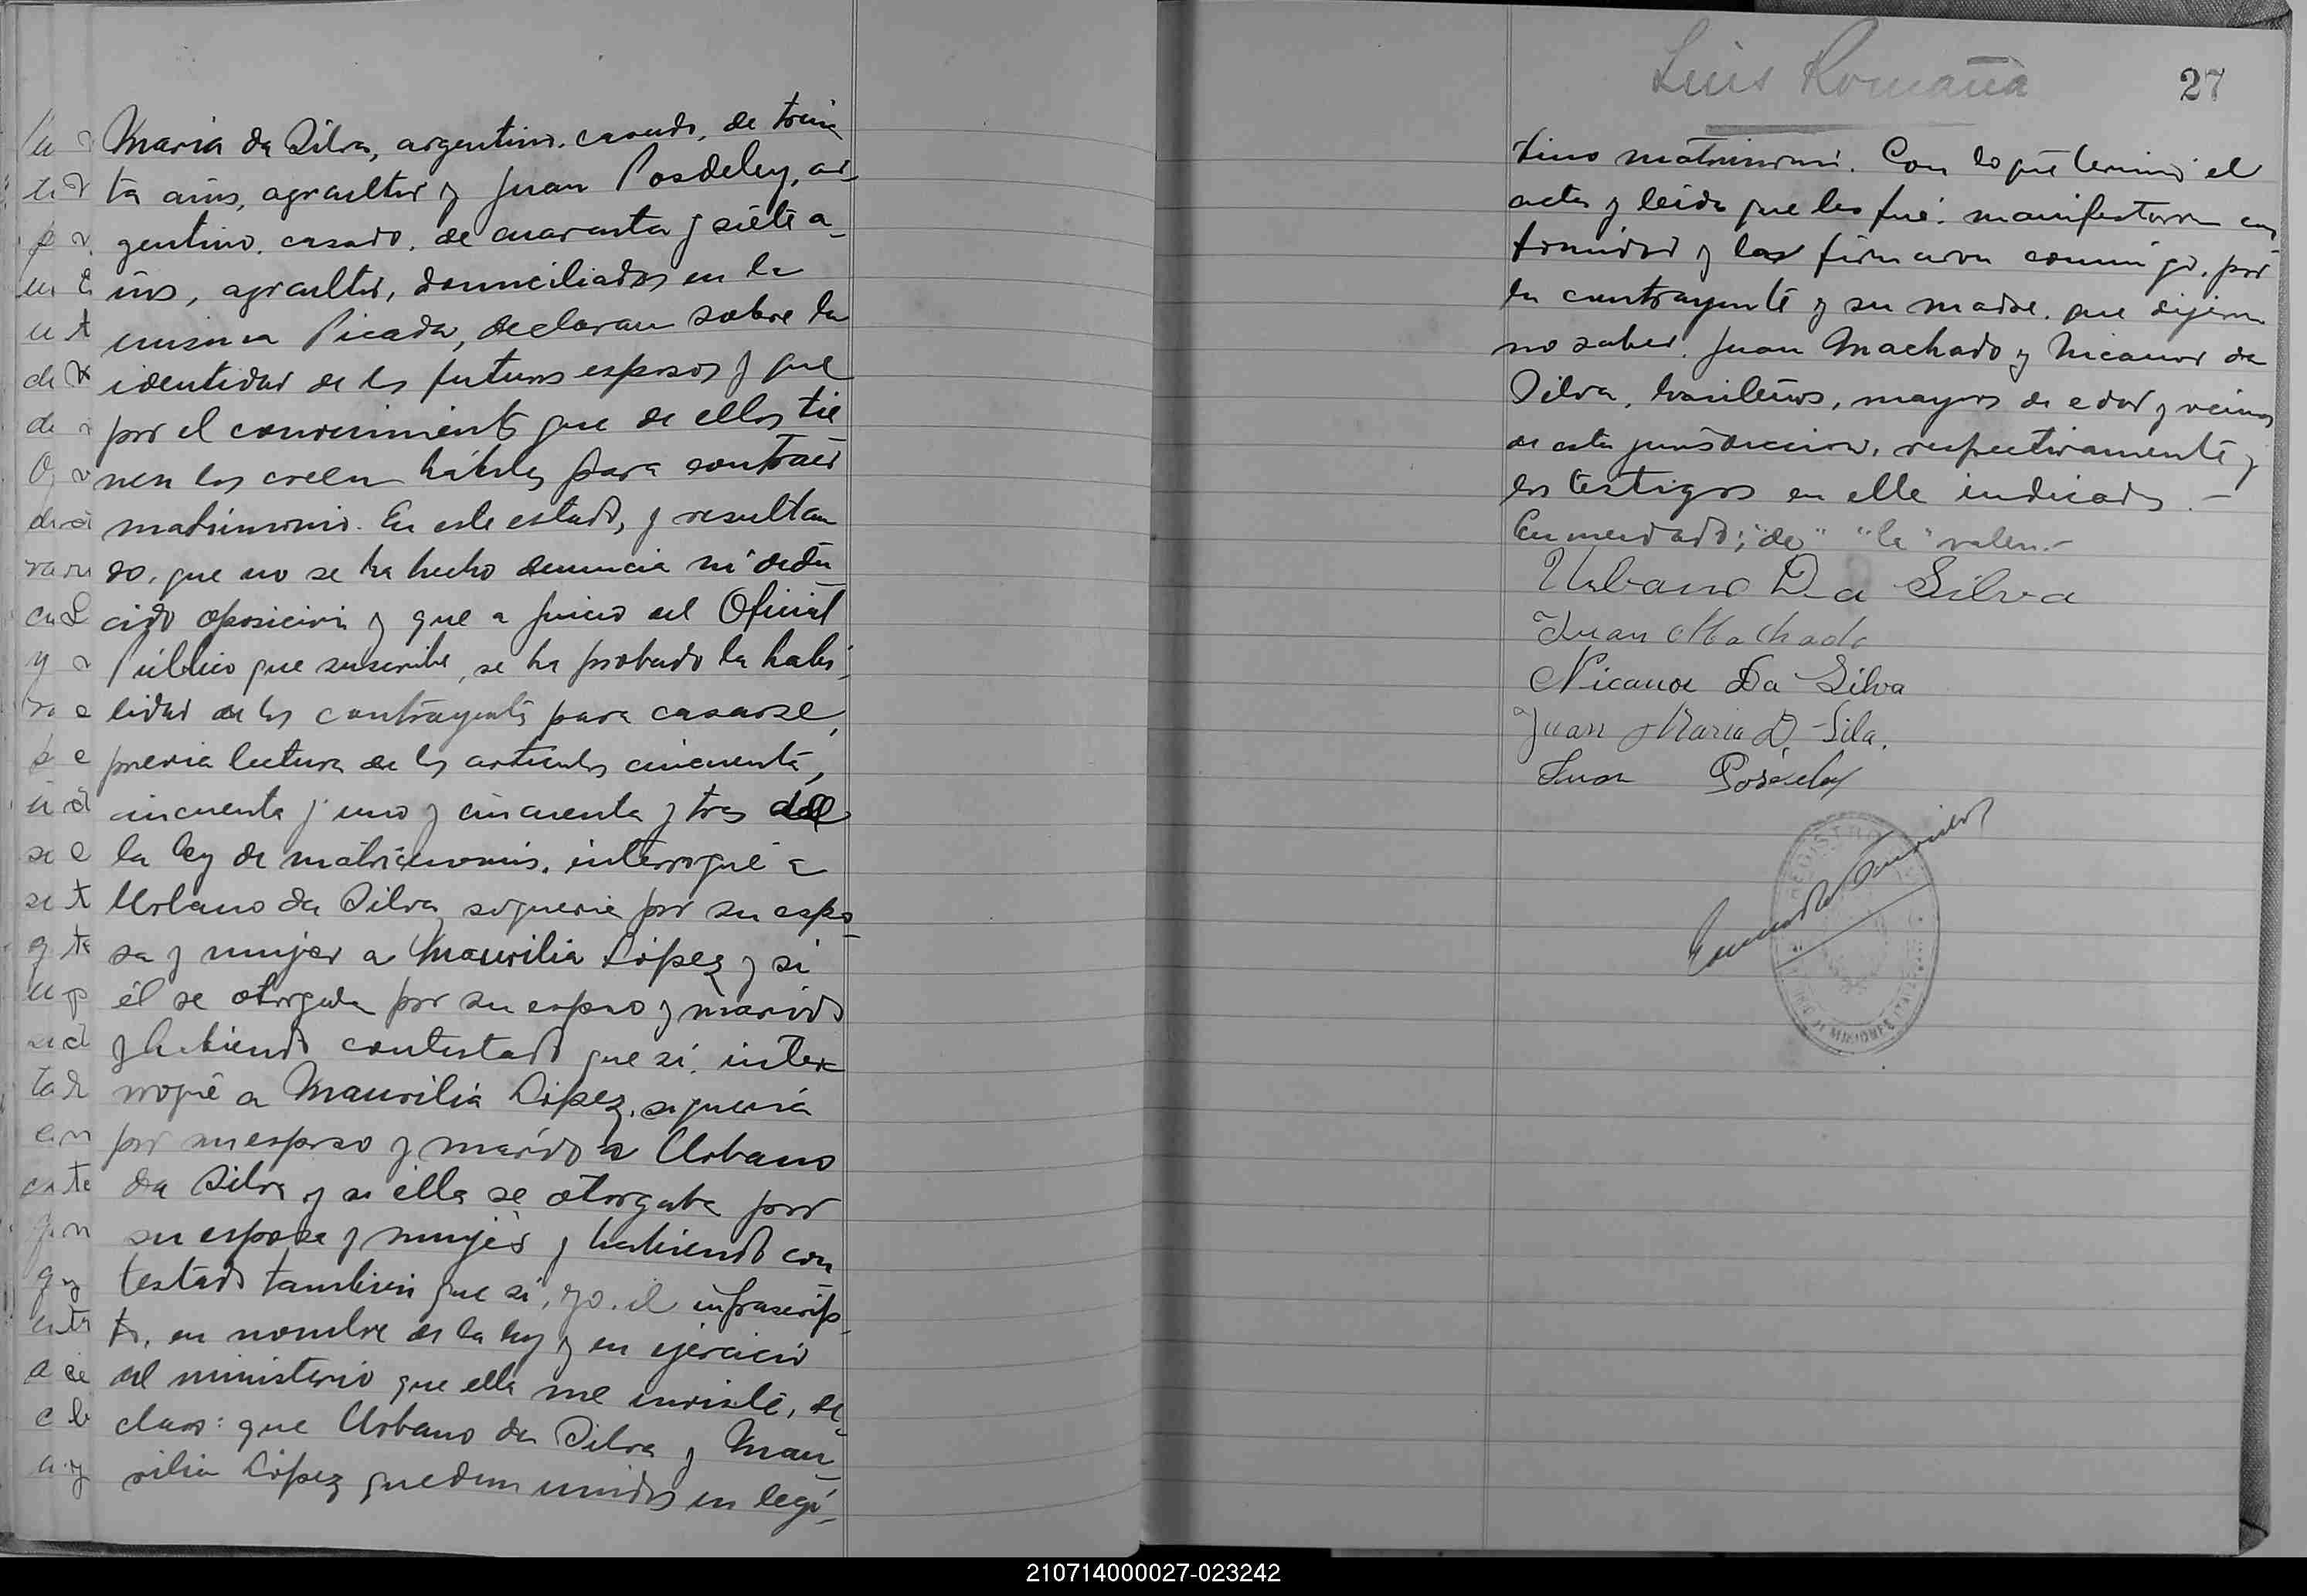 Maria da Silva, argentino, casado, de trein
ta años, agricultor y Juan Posdeley, ar-
gentino, casado, de cuarenta y siete a-
ños, agricultor, domiciliados en la
misma Picada, declaran sobre la
identidad de los futuros esposos y que
por el conocimiento que de ellos tie
nen los creen hábiles para contraer
matrimonio. En este estado, y resultan
do, que no se ha hecho denuncia ni dedu
cido oposición y que a juicio del Oficial
Público que suscribe, se ha probado la habi-
lidad de los contrayentes para casarse,
previa lectura de los artículos cincuenta,
cincuenta y uno y cincuenta y tres de
la ley de matrimonio, interrogué a
Urbano da Silva si quería por su espo-
sa y mujer a Maurilia López y si
él se otorgaba por su esposo y marido
y habiendo contestado que sí, inter
rogué a Maurilia López, si quería
por su esposo y marido a Urbano
da Silva y si ella se otorgaba por
su esposa y mujer y habiendo con
testado también que sí, yo, el infrascrip-
to, en nombre de la ley y en ejercicio
del ministerio que ella me inviste, de-
claro: que Urbano da Silva y Mau-
rilia López quedan unidos en legí-
Luis Romañá
27
timo matrimonio. Con lo que terminó el
acta y leída que les fué, manifestaron con
formidad y la firmaron conmigo, por
la contrayente y su madre, que dijeron
no saber, Juan Machado y Nicanor da
Silva, brasileños, mayores de edad y vecinos
de esta jurisdiccion, respectivamente y
los testigos en ella indicados.-
Enmendado: "de" "la" valen.-
Urbano Da Silva
Juan Machado
Nicanor Da Silva
Juan Maria D. Sila.
Juan Posdeley
REGISTRO
MISIONES
210714000027-023242